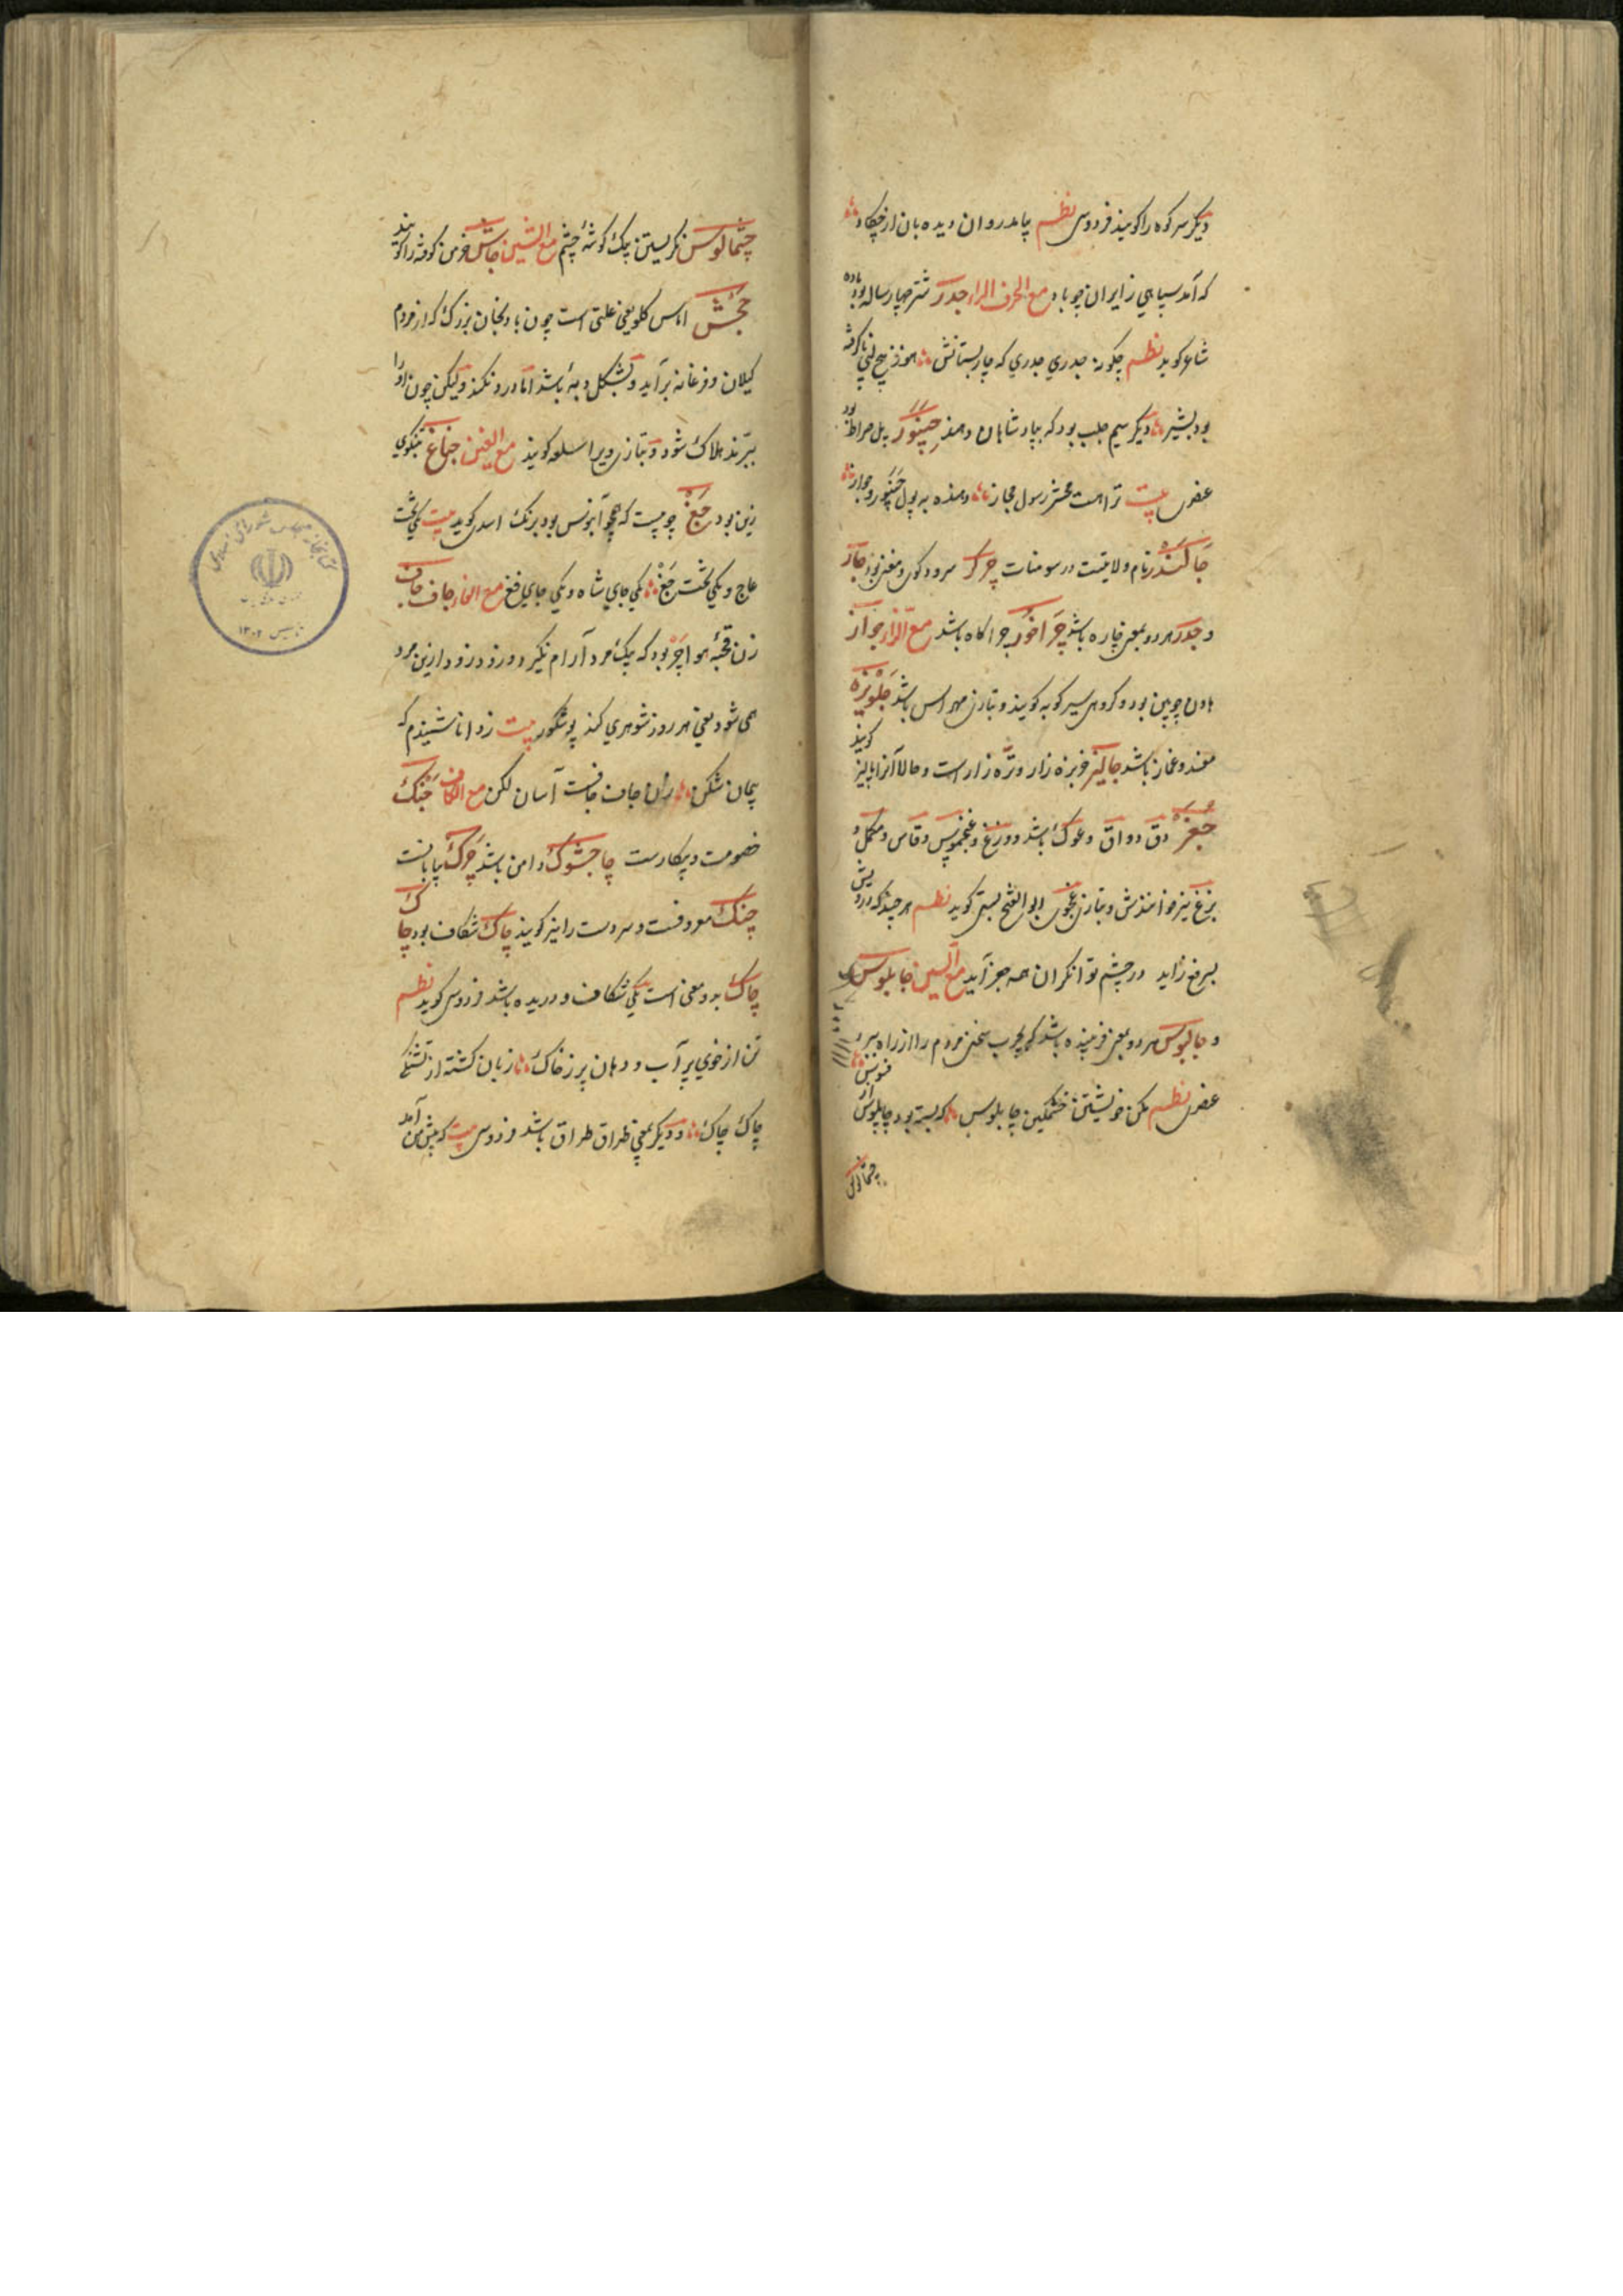 دیگر سر کوه را کویند فردوسی نظم بیامد روان دیده بان از چکاد
که آمد سپاهی ز ایران چو باد مع الحرف الراء جدر شتر چهار ساله بود ماده
شاعر کوید نظم چکونه جدری جدری که جا ز پستانش هنوز هیچ لبی نا گرفته
بود بشیر دیگر سیم جلب بود که بپادشاهان دهند چینور پل صراط بود
عضری بیت ترا هست محشر رسول حجاز دهنده به پول چنیور جواز
جالندر نام ولایتست در سومنات چرکر سرود کوی و مغنی بود جار
و جدر هر دو بمعنی چاره باشد چراخور چراکاه باشد مع الزاء جواز
هاون چوبین بود و کروهی سیر کوبه کویند و بتازی مهراس باشد جلویزه
مفسد و غماز باشد جالیز خربزه زار و تره زار است و حالا آنرا پالیز کویند
جغز دق دواق و عوک باشد و وزغ و غنجموس و قاس و مکل و
بزغ نیز خوانندش و بتازی غنجوی ابو الفتح بستی کوید نظم هر چند که درویش
بسر فغ زاید در چشم توانکران همه چغز آید مع السین چابلوس
و جالپوس هر دو بمعنی فریبنده باشد که بچرب سخنی مردم را از راه ببرد
عضری نظم مکن خویشتن خشمکین چابلوس که بسته بود چاپلوس از فسوس
چشمالوس
چشمالوس نکریستن بیک کوشهٔ چشم مع الشین جاش خرمن کوفته را کویند
جخش اماس کلو یعنی علتی است چون بادنجان بزرک که از مردم
کیلان و فرغانه برآید و بشکل دبه باشد اما درد نکند و لیکن چون او را
ببرند هلاک شود و بتازی ویرا سلعه کویند مع الغین جناغ تنکوی
زین بود جغ چوبیست که همچو آبنوس بود برنک اسدی کوید بیت یکی تخت
عاج و یکی تخت جغ یکی جای شاه و یکی جای فغ مع الفاء جاف جاف
زن قحبهٔ هواچز بود که بیک مرد آرام نکیرد و زود زود از این مرد
همی شود یعنی هر روز شوهری کند بوشکور بیت ز دانا شنیدم که
پیمان شکن زن جاف جافست آسان لکن مع الکاف جنک
خصومت و پیکارست چاجشوک دامن باشد چرک بیابانست
چنک معروفست و سر دست را نیز کویند چاک شکاف بود چاک
چاک بدو معنی است یکی شکاف و دریده باشد فردوسی کوید نظم
تن از خوی پر آب و دهان پر ز خاک زبان کشته از تشنکی
چاک چاک و دیکر بمعنی طراق طراق باشد فردوسی بیت که پیش من آمد
کتابخانه مجلس شورای
تاسیس ۱۳۰۲